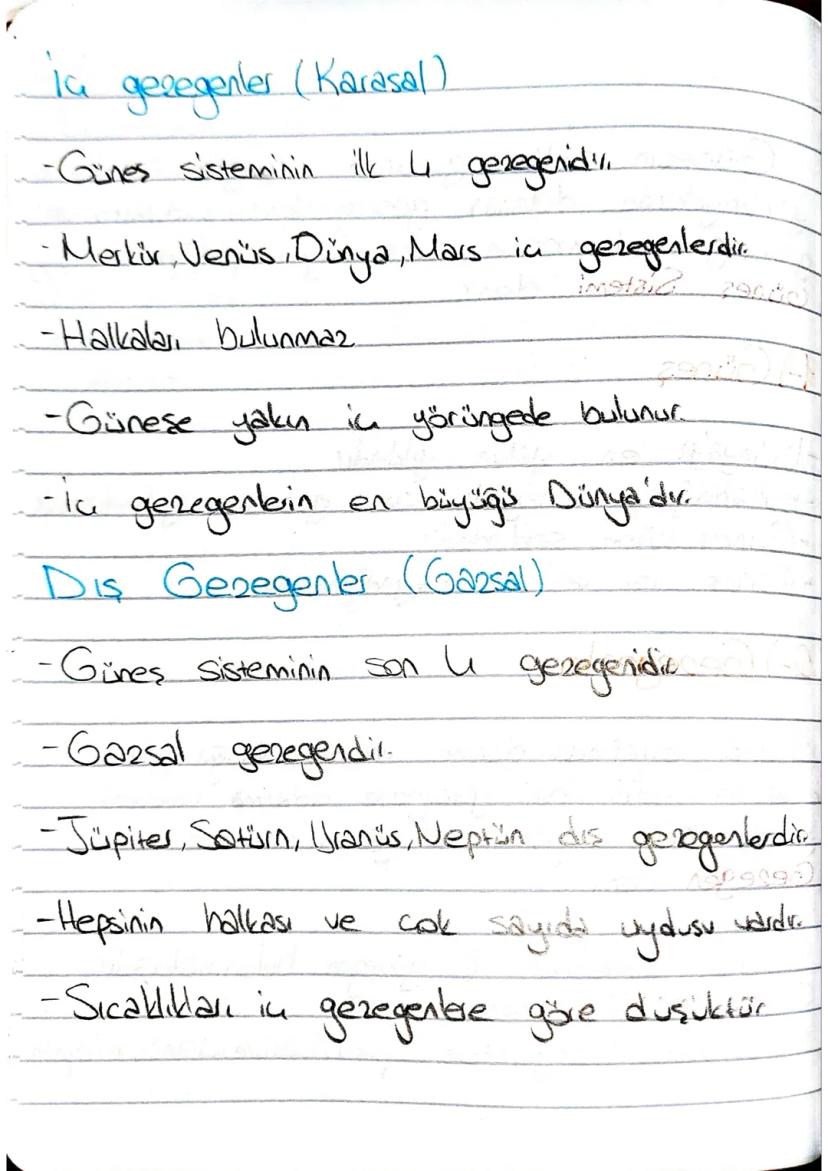 İç gezegenler (Karasal)
-Güneş sisteminin ilk 4 gezegenidir.
-Merkür, Venüs, Dünya, Mars iç gezegenlerdir.
-Halkaları bulunmaz
-Güneşe yakın iç yörüngede bulunur.
-İç gezegenlerin en büyüğü Dünya'dır.
Dış Gezegenler (Gazsal)
-Güneş sisteminin son 4 gezegenidir
-Gazsal gezegendir.
-Jüpiter, Satürn, Uranüs, Neptün dış gezegenlerdir.
-Hepsinin halkası ve çok sayıda uydusu vardır.
-Sıcaklıkları iç gezegenlere göre düşüktür